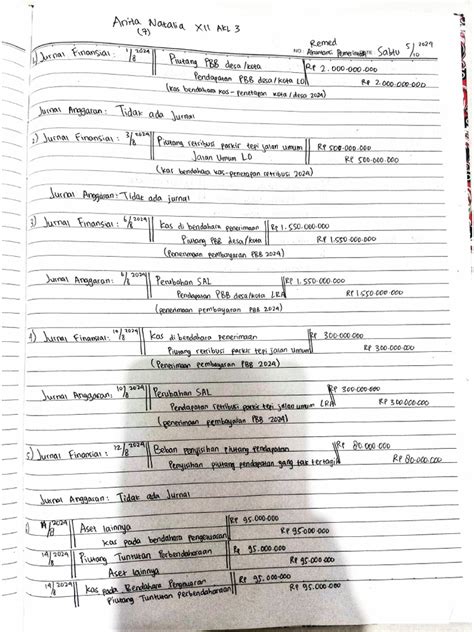 Anita Natalia XII AKL 3
(7)
Remed
NO: Akuntansi Pemerintah DATE Sabtu 5/10 2024
1) Jurnal Finansial : 1/8 2024 Piutang PBB desa/kota Rp 2.000.000.000
Pendapatan PBB desa/kota LO Rp 2.000.000.000
(kas bendahara kas - penetapan kota/desa 2024)
Jurnal Anggaran : Tidak ada Jurnal
2) Jurnal Finansial : 3/8 2024 Piutang retribusi parkir tepi jalan umum Rp 500.000.000
Jalan Umum LO Rp 500.000.000
(kas bendahara kas - penerapan retribusi 2024)
Jurnal Anggaran : Tidak ada jurnal
3) Jurnal Finansial : 6/8 2024 Kas di bendahara penerimaan Rp 1.550.000.000
Piutang PBB desa/kota Rp 1.550.000.000
(Penerimaan pembayaran PBB 2024)
Jurnal Anggaran : 6/8 2024 Perubahan SAL Rp 1.550.000.000
Pendapatan PBB desa/kota LRA Rp 1.550.000.000
(penerimaan pembayaran PBB 2024)
4) Jurnal Finansial : 10/8 2024 Kas di bendahara penerimaan Rp 300.000.000
Piutang retribusi parkir tepi jalan umum Rp 300.000.000
(Penerimaan pembayaran PBB 2024)
Jurnal Anggaran : 10/8 2024 Perubahan SAL Rp 300.000.000
Pendapatan retribusi parkir tepi jalan umum LRA Rp 300.000.000
(penerimaan pembayaran PBB 2024)
5) Jurnal Finansial : 12/8 2024 Beban Penyisihan piutang pendapatan Rp 80.000.000
Penyisihan piutang pendapatan yang tak tertagih Rp 80.000.000
Jurnal Anggaran : Tidak ada Jurnal
14/8 2024 Aset lainnya Rp 95.000.000
Kas pada bendahara pengeluaran Rp 95.000.000
14/8 2024 Piutang Tuntutan Perbendaharaan Rp 95.000.000
Aset lainnya Rp 95.000.000
14/8 2024 Kas pada Bendahara Pengeluaran Rp 95.000.000
Piutang Tuntutan perbendaharaan Rp 95.000.000